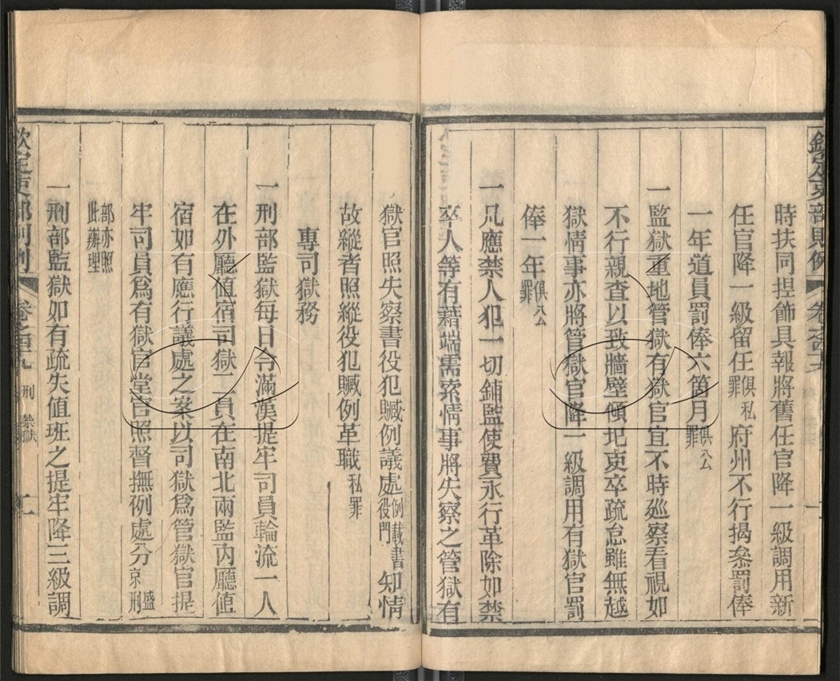 欽定吏部則例 卷之四十九 一
時扶同捏飾具報將舊任官降一級調用新
任官降一級留任俱私罪府州不行揭參罰俸
一年道員罰俸六箇月俱公罪
一監獄重地管獄有獄官宜不時巡察看視如
不行親查以致牆壁傾圮吏卒疏怠雖無越
獄情事亦將管獄官降一級調用有獄官罰
俸一年俱公罪
一凡應禁人犯一切鋪監使費永行革除如禁
卒人等有藉端需索情事將失察之管獄有
獄官照失察書役犯贓例議處例載書役門知情
故縱者照縱役犯贓例革職私罪
專司獄務
一刑部監獄每日令滿漢提牢司員輪流一人
在外廳值宿司獄二員在南北兩監內廳值
宿如有應行議處之案以司獄為管獄官提
牢司員為有獄官堂官照督撫例處分盛京刑
部亦照此辦理
一刑部監獄如有疏失值班之提牢降三級調
欽定吏部則例 卷之四十九 刑 禁獄 二